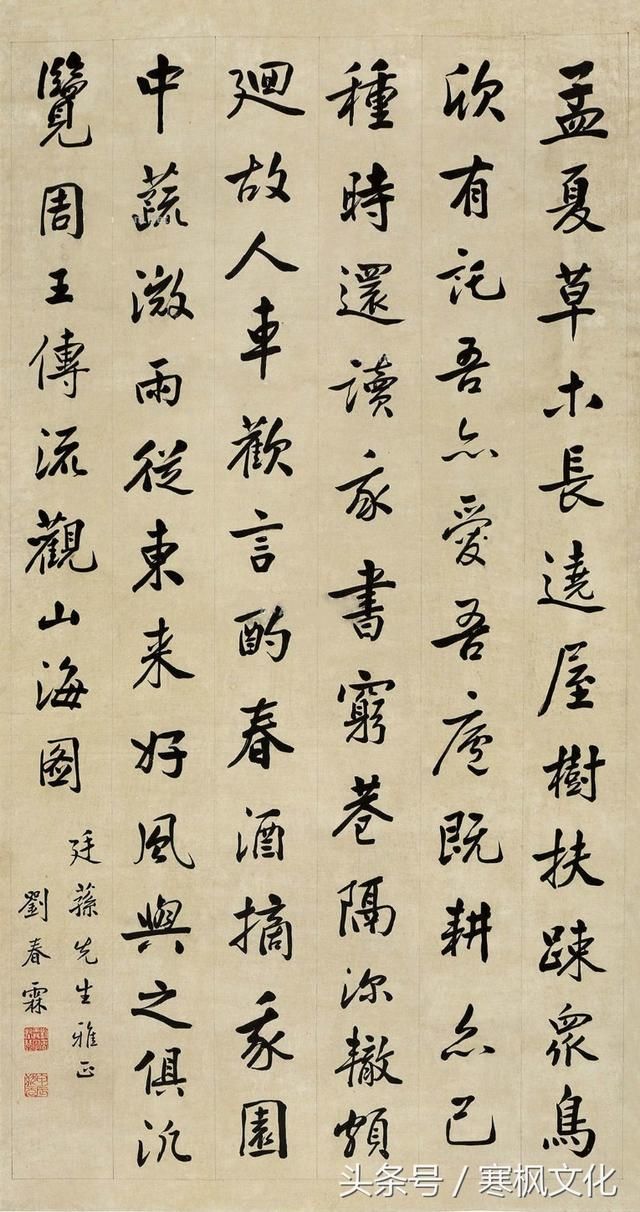 孟夏草木長遶屋樹扶踈衆鳥
欣有託吾亦愛吾廬既耕亦已
種時還讀我書窮巷隔深轍頗
廻故人車歡言酌春酒摘我園
中蔬微雨從東来好風與之俱汎
覽周王傳流觀山海圖
廷蓀先生雅正
劉春霖
头条号 / 寒枫文化